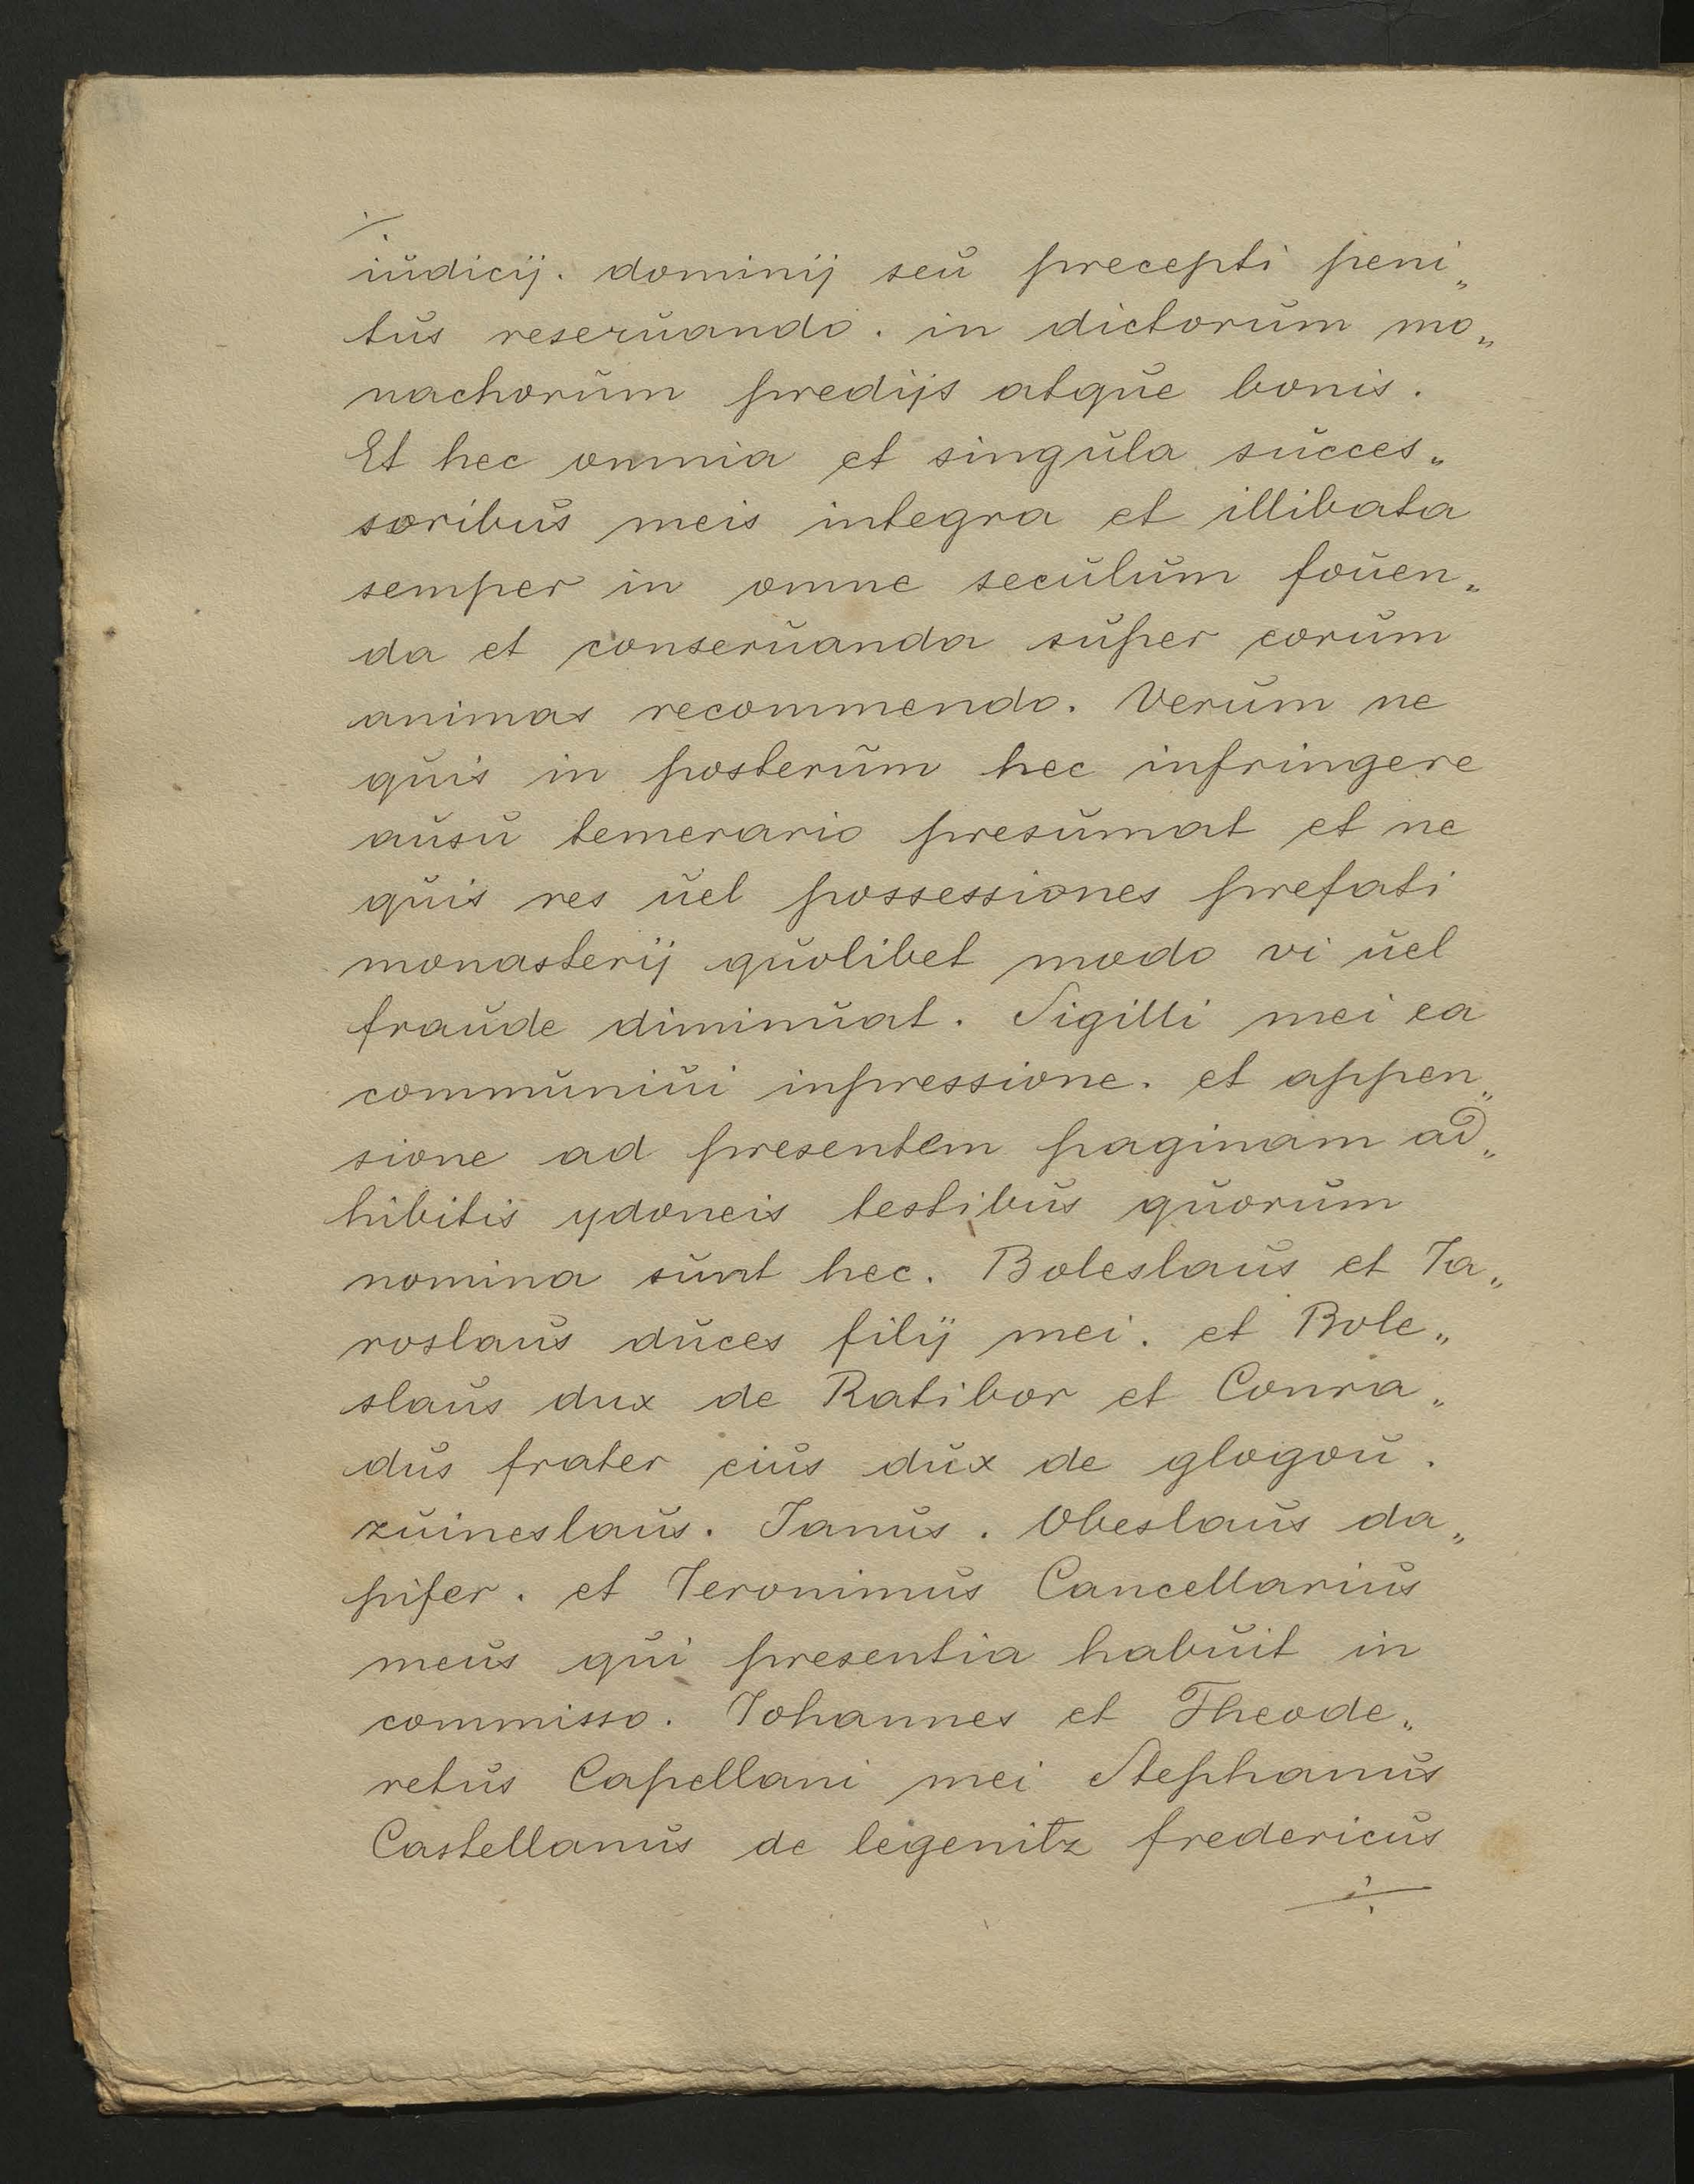 iudicij. dominij seu precepti peni„
tus reseruando. in dictorum mo„
nachorum predijs atque bonis.
Et hec omnia et singula succes„
soribus meis integra et illibata
semper in omne seculum fouen„
da et conseruanda super eorum
animas recommendo. Verum ne
quis in posterum hec infringere
ausu temerario presumat et ne
quis res uel possessiones prefati
monasterij quolibet modo vi uel
fraude diminuat. Sigilli mei ea
communiui inpressione. et appen„
sione ad presentem paginam ad„
hibitis ydoneis testibus quorum
nomina sunt hec. Boleslaus et Ia„
roslaus duces filij mei. et Bole„
slaus dux de Ratibor et Conra„
dus frater eius dux de glogou.
zuineslaus. Ianus. Obeslaus da„
pifer. et Ieronimus Cancellarius
meus qui presentia habuit in
commisso. Iohannes et Theode„
retus Capellani mei Stephanus
Castellanus de legenitz fredericus